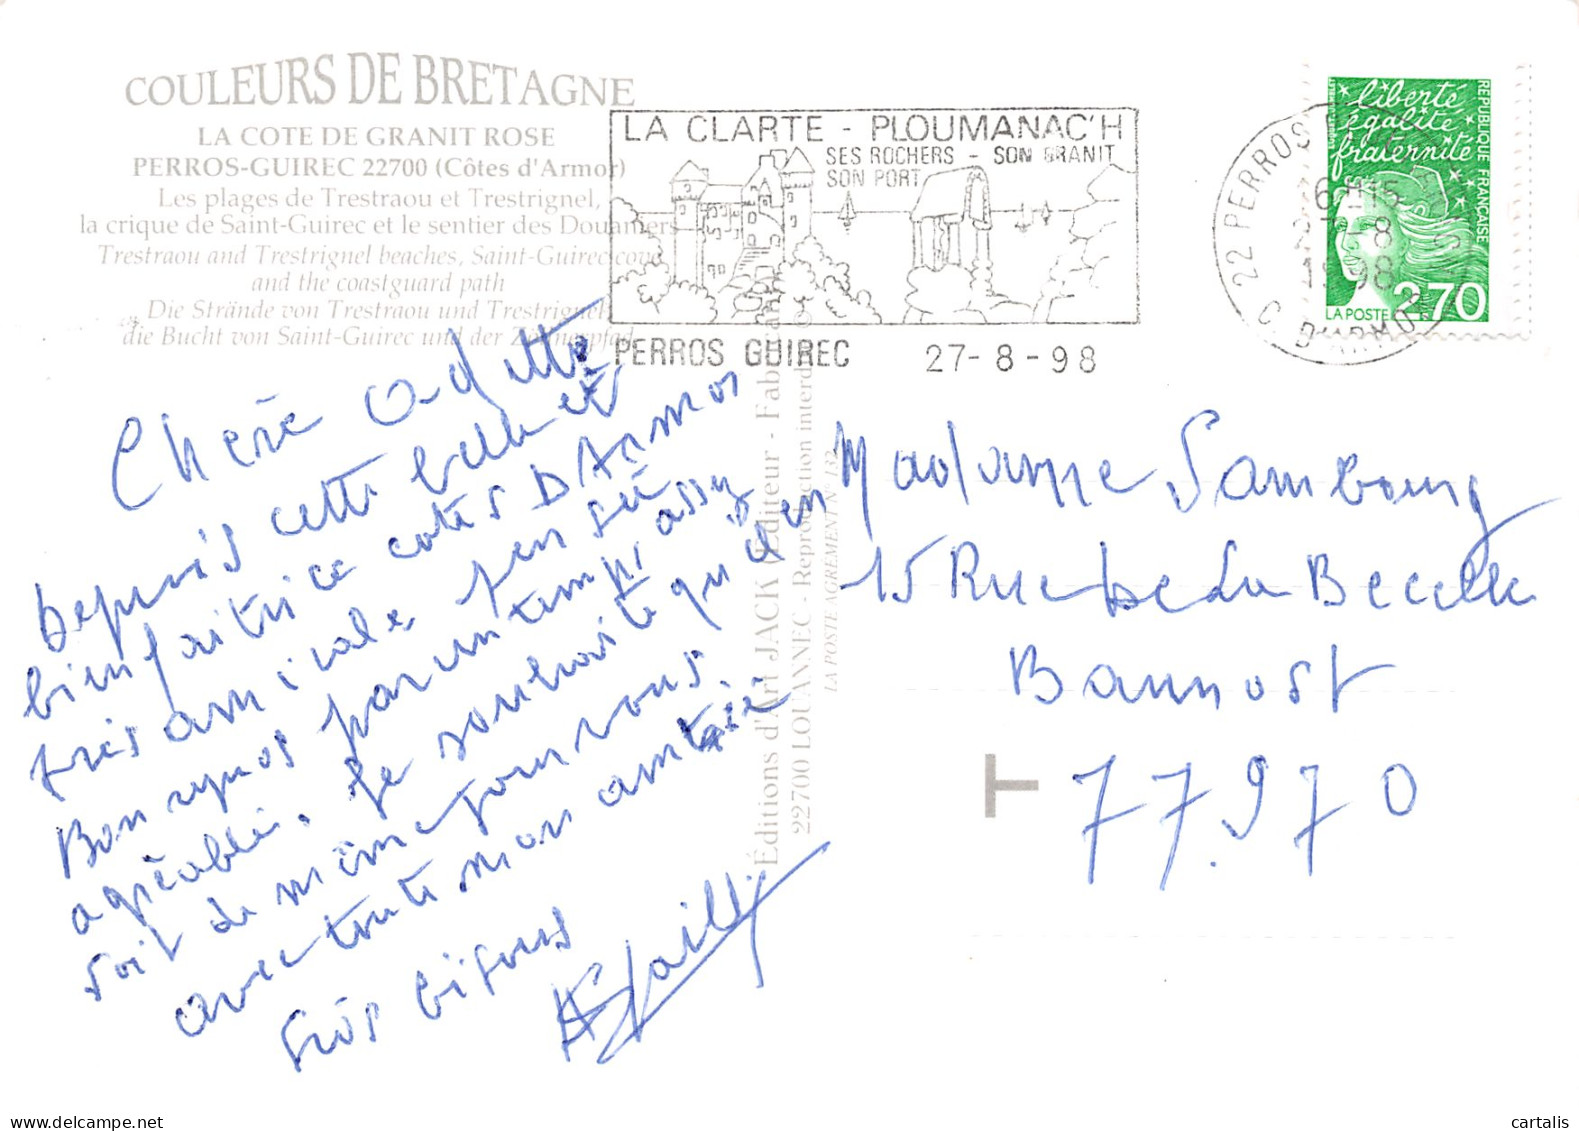 COULEURS DE BRETAGNE
LA COTE DE GRANIT ROSE
PERROS-GUIREC 22700 (Côtes d'Armor)
Les plages de Trestraou et Trestrignel,
la crique de Saint-Guirec et le sentier des Douaniers
Trestraou and Trestrignel beaches, Saint-Guirec cove
and the coastguard path
Die Strände von Trestraou und Trestrignel
die Bucht von Saint-Guirec und der Zöllnerpfad
LA CLARTE - PLOUMANAC'H
SES ROCHERS - SON GRANIT
SON PORT
PERROS GUIREC 27-8-98
22 PERROS
6H15
27-8
1998
C. D'ARMOR
liberté
égalité
fraternité
REPUBLIQUE FRANÇAISE
LA POSTE 2,70
Chère Odette
Depuis cette belle et
bienfaitrice cotes D Armor
très amicale pensée
Bon repos par un temps assez
agréable. Je souhaite qu'il en
soit de même pour vous.
avec toute mon amitié
Gros bisous
Éditions d'Art JACK Éditeur - Fabriqué
22700 LOUANNEC - Reproduction interdite ©
LA POSTE AGREMENT N° 132
Madame Sambourg
15 Rue de La Becelle
Bannost
77.970
T
cartalis